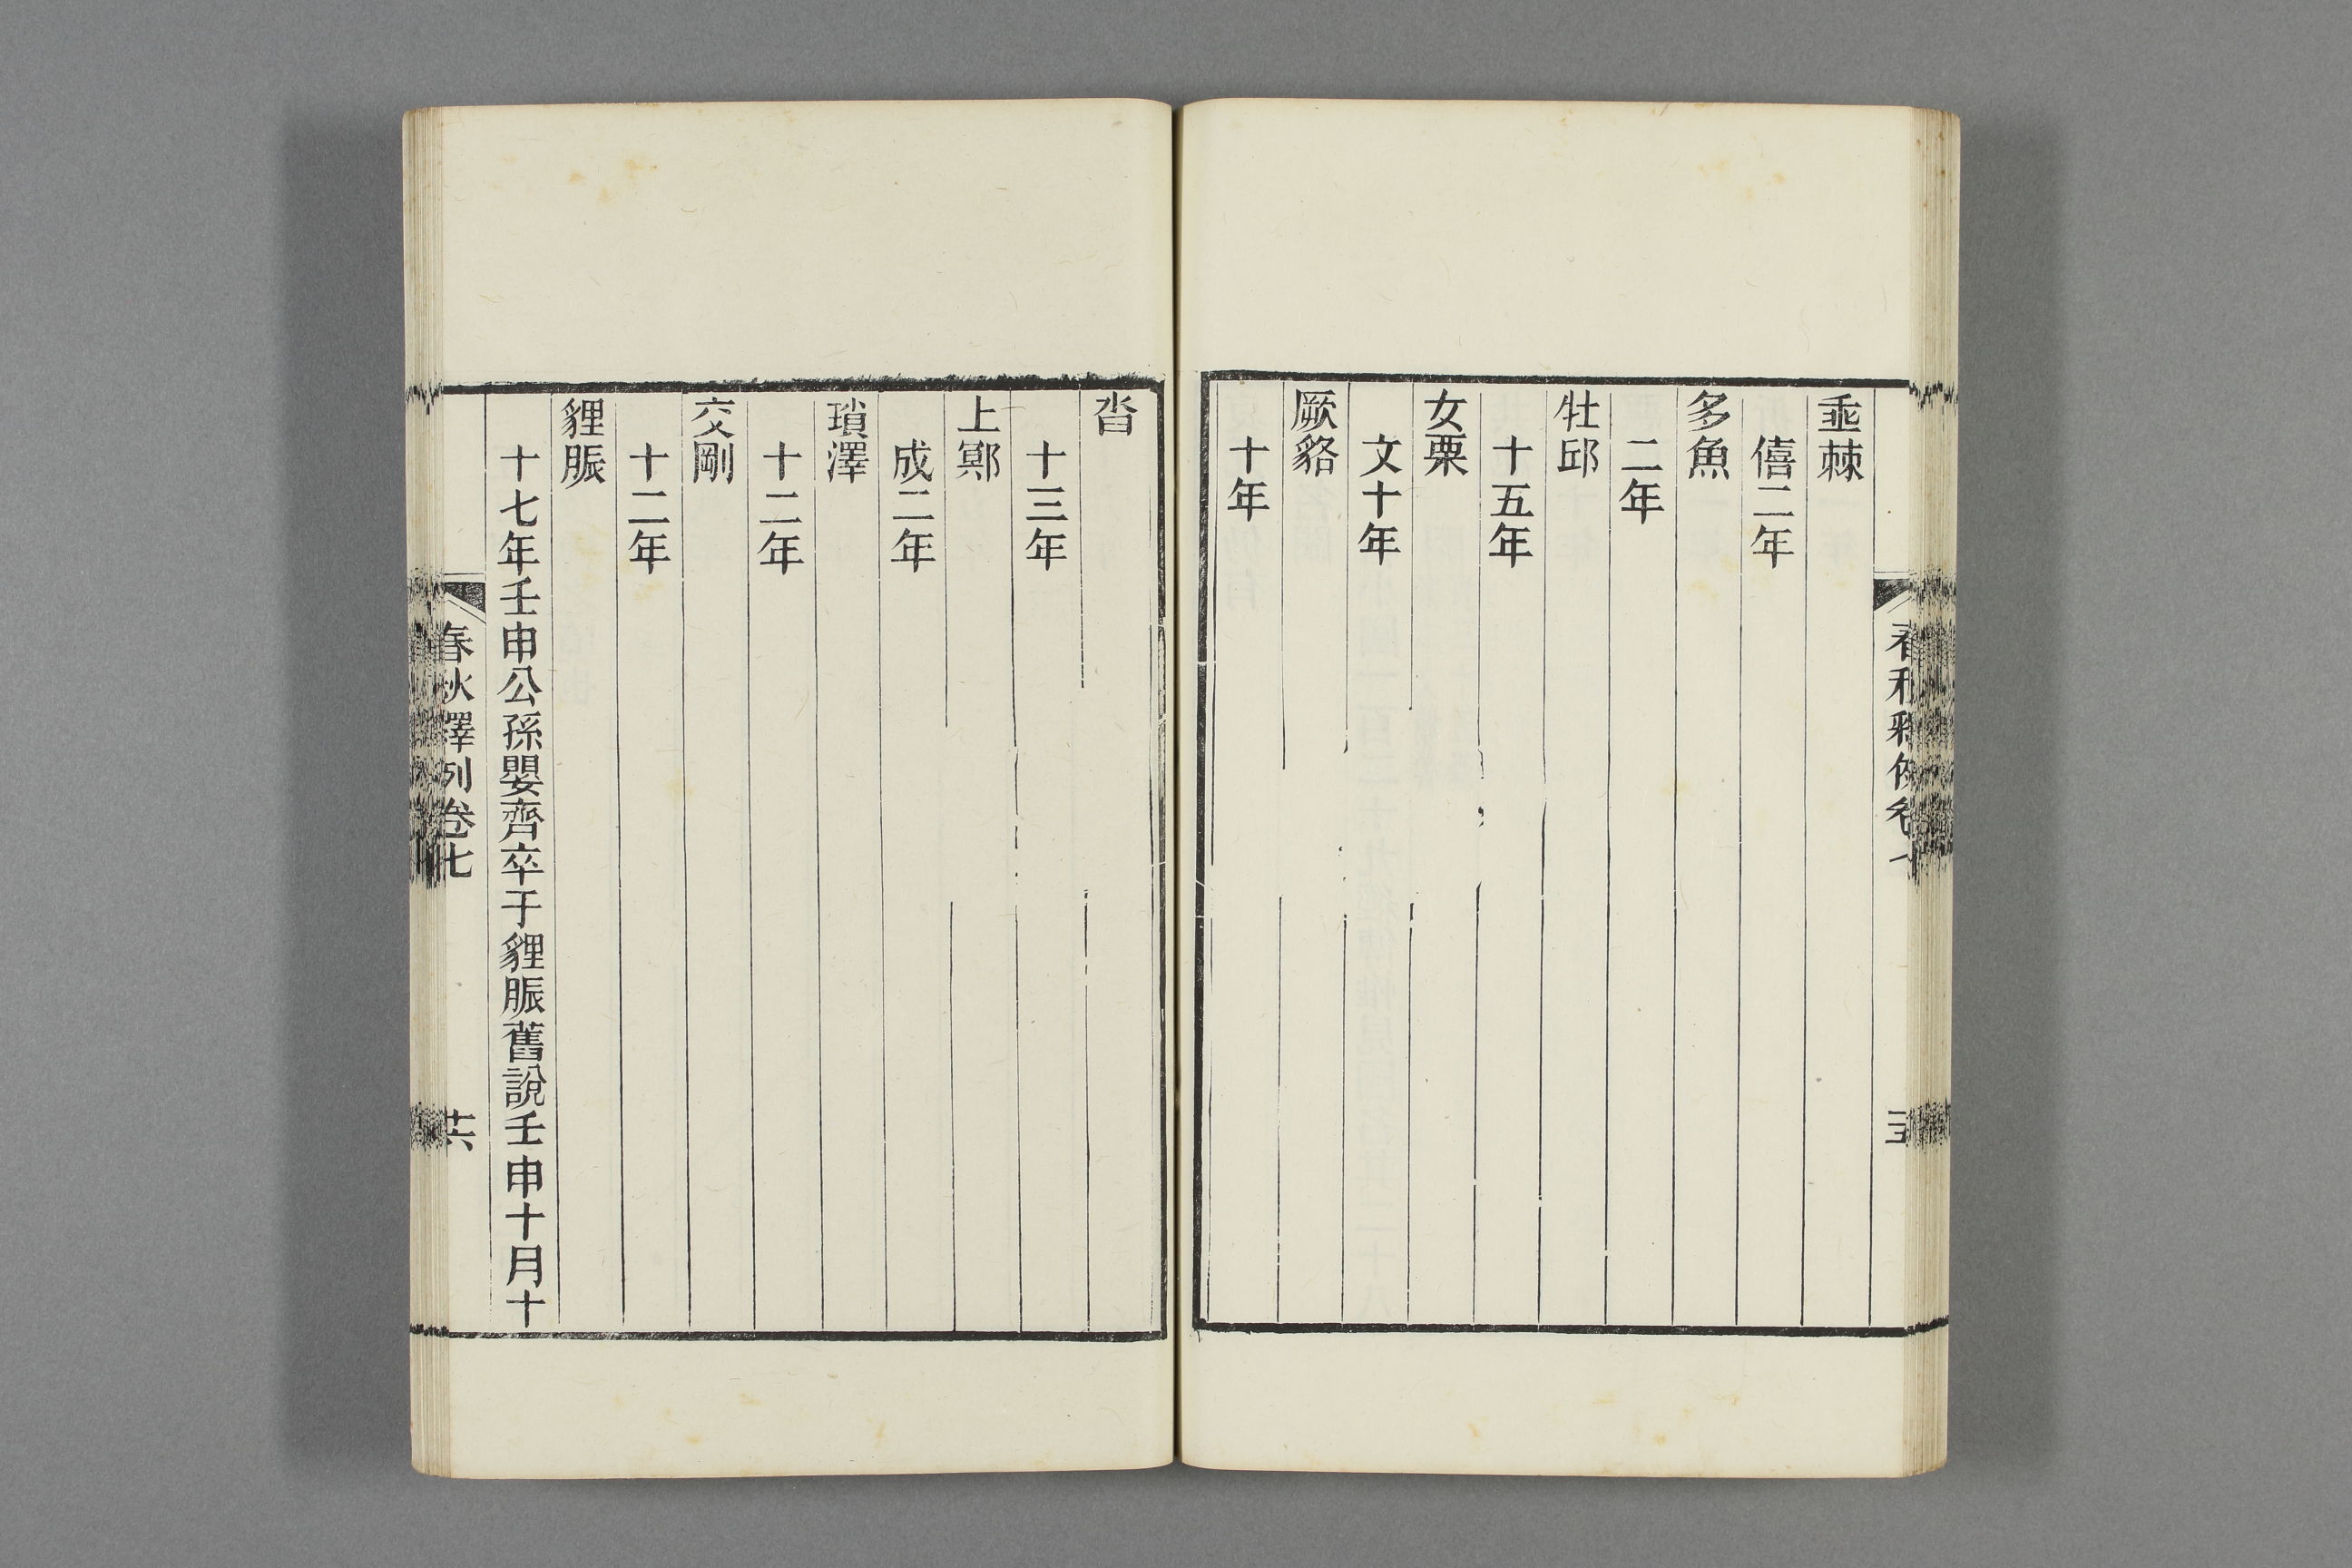 垂棘
僖二年
多魚
二年
牡邱
十五年
女栗
文十年
厥貉
十年
沓
十三年
上鄍
成二年
瑣澤
十二年
交剛
十二年
貍脤
十七年壬申公孫嬰齊卒于貍脤舊說壬申十月十
春秋釋例卷七